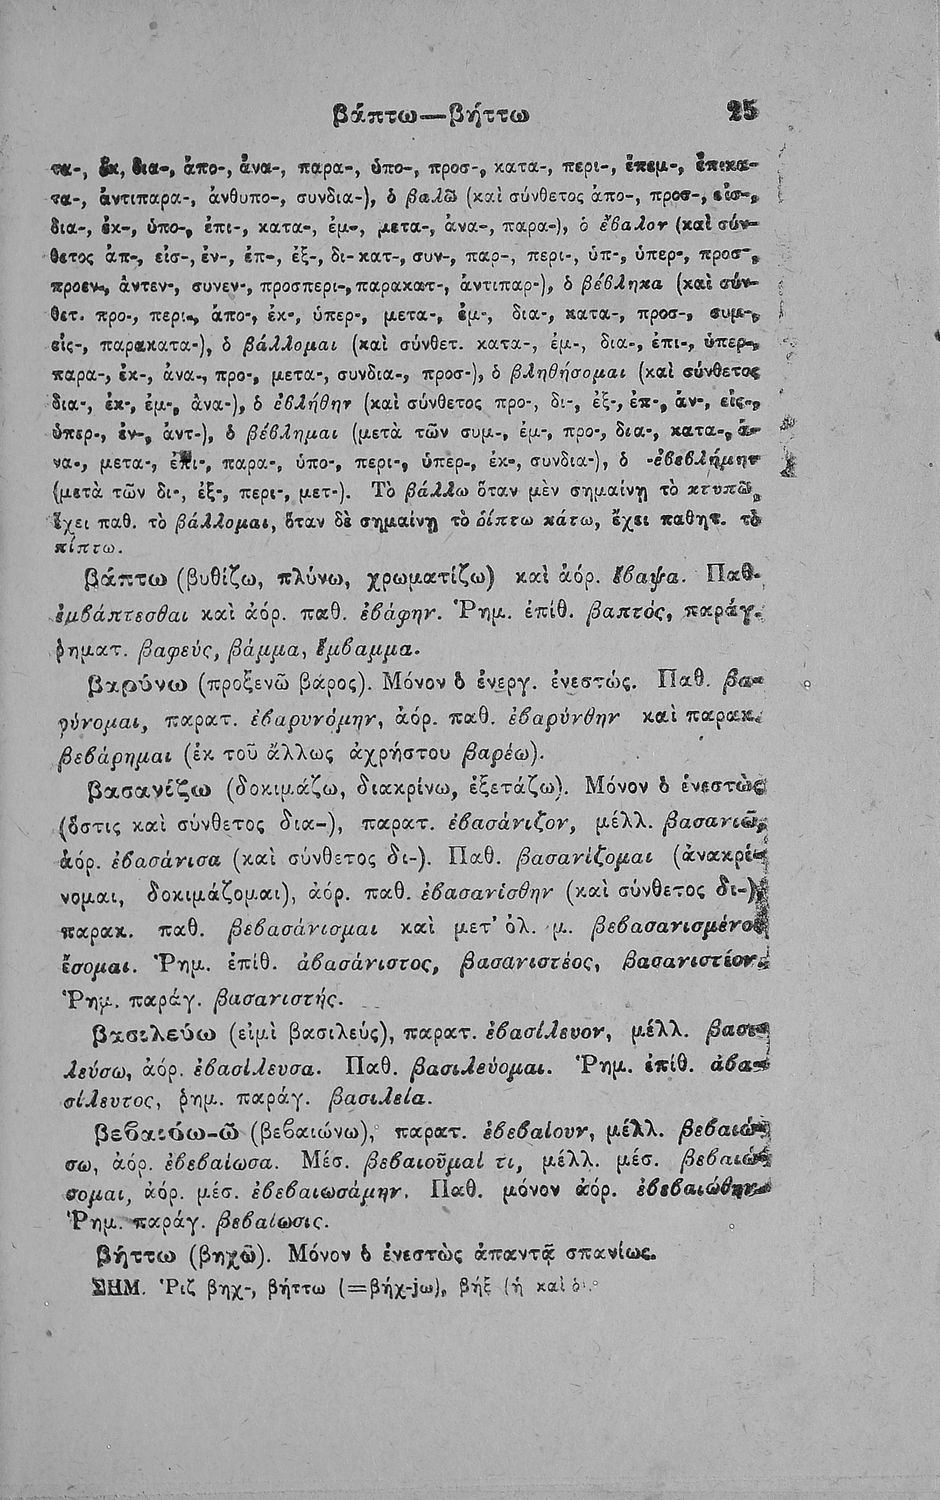 βάπτω—βήττω 25
τα-, ἐκ, δια-, ἀπο-, ἀνα-, παρα-, ὑπο-, προσ-, κατα-, περι-, ἐπεμ-, ἐπικα-
τα-, ἀντιπαρα-, ἀνθυπο-, συνδια-), ὁ βαλῶ (καὶ σύνθετος ἀπο-, προσ-, εἰσ-,
δια-, ἐκ-, ὑπο-, ἐπι-, κατα-, ἐμ-, μετα-, ἀνα-, παρα-), ὁ ἔβαλον (καὶ σύν-
θετος ἀπ-, εἰσ-, ἐν-, ἐπ-, ἐξ-, δι- κατ-, συν-, παρ-, περι-, ὑπ-, ὑπερ-, προσ-,
προεν-, ἀντεν-, συνεν-, προσπερι-, παρακατ-, ἀντιπαρ-), ὁ βέβληκα (καὶ σύν-
θετ. προ-, περι-, ἀπο-, ἐκ-, ὑπερ-, μετα-, ἐμ-, δια-, κατα-, προσ-, συμ-,
εἰς-, παρακατα-), ὁ βάλλομαι (καὶ σύνθετ. κατα-, ἐμ-, δια-, ἐπι-, ὑπερ-,
παρα-, ἐκ-, ἀνα-, προ-, μετα-, συνδια-, προσ-), ὁ βληθήσομαι (καὶ σύνθετος
δια-, ἐκ-, ἐμ-, ἀνα-), ὁ ἐβλήθην (καὶ σύνθετος προ-, δι-, ἐξ-, ἐπ-, ἀν-, εἰς-,
ὑπερ-, ἐν-, ἀντ-), ὁ βέβλημαι (μετὰ τῶν συμ-, ἐμ-, προ-, δια-, κατα-, ἀ-
να-, μετα-, ἐπι-, παρα-, ὑπο-, περι-, ὑπερ-, ἐκ-, συνδια-), ὁ -ἐβεβλήμην
(μετὰ τῶν δι-, ἐξ-, περι-, μετ-). Τὸ βάλλω ὅταν μὲν σημαίνῃ τὸ κτυπῶ,
ἔχει παθ. τὸ βάλλομαι, ὅταν δὲ σημαίνῃ τὸ ῥίπτω κάτω, ἔχει παθητ. τὸ
πίπτω.
βάπτω (βυθίζω, πλύνω, χρωματίζω) καὶ ἀόρ. ἔβαψα. Παθ.
ἐμβάπτεσθαι καὶ ἀόρ. παθ. ἐβάφην. Ῥημ. ἐπίθ. βαπτός, παράγ.
ῥηματ. βαφεύς, βάμμα, ἔμβαμμα.
βαρύνω (προξενῶ βάρος). Μόνον ὁ ἐνεργ. ἐνεστώς. Παθ. βα-
ρύνομαι, παρατ. ἐβαρυνόμην, ἀόρ. παθ. ἐβαρύνθην καὶ παρακ.
βεβάρημαι (ἐκ τοῦ ἄλλως ἀχρήστου βαρέω).
βασανίζω (δοκιμάζω, διακρίνω, ἐξετάζω). Μόνον ὁ ἐνεστὼς
(ὅστις καὶ σύνθετος δια-), παρατ. ἐβασάνιζον, μέλλ. βασανιῶ,
ἀόρ. ἐβασάνισα (καὶ σύνθετος δι-). Παθ. βασανίζομαι (ἀνακρί-
νομαι, δοκιμάζομαι), ἀόρ. παθ. ἐβασανίσθην (καὶ σύνθετος δι-)
παρακ. παθ. βεβασάνισμαι καὶ μετ' ὀλ. μ. βεβασανισμένος
ἔσομαι. Ῥημ. ἐπίθ. ἀβασάνιστος, βασανιστέος, βασανιστέον.
Ῥημ. παράγ. βασανιστής.
βασιλεύω (εἰμὶ βασιλεύς), παρατ. ἐβασίλευον, μέλλ. βασι-
λεύσω, ἀόρ. ἐβασίλευσα. Παθ. βασιλεύομαι. Ῥημ. ἐπίθ. ἀβα-
σίλευτος, ῥημ. παράγ. βασιλεία.
βεβαιόω-ῶ (βεβαιώνω), παρατ. ἐβεβαίουν, μέλλ. βεβαιώ-
σω, ἀόρ. ἐβεβαίωσα. Μέσ. βεβαιοῦμαί τι, μέλλ. μέσ. βεβαιώ-
σομαι, ἀόρ. μέσ. ἐβεβαιωσάμην. Παθ. μόνον ἀόρ. ἐβεβαιώθην.
Ῥημ. παράγ. βεβαίωσις.
βήττω (βηχῶ). Μόνον ὁ ἐνεστὼς ἀπαντᾷ σπανίως.
ΣΗΜ. Ῥιζ βηχ-, βήττω (=βήχ-jω), βήξ (ἡ καὶ ὁ).